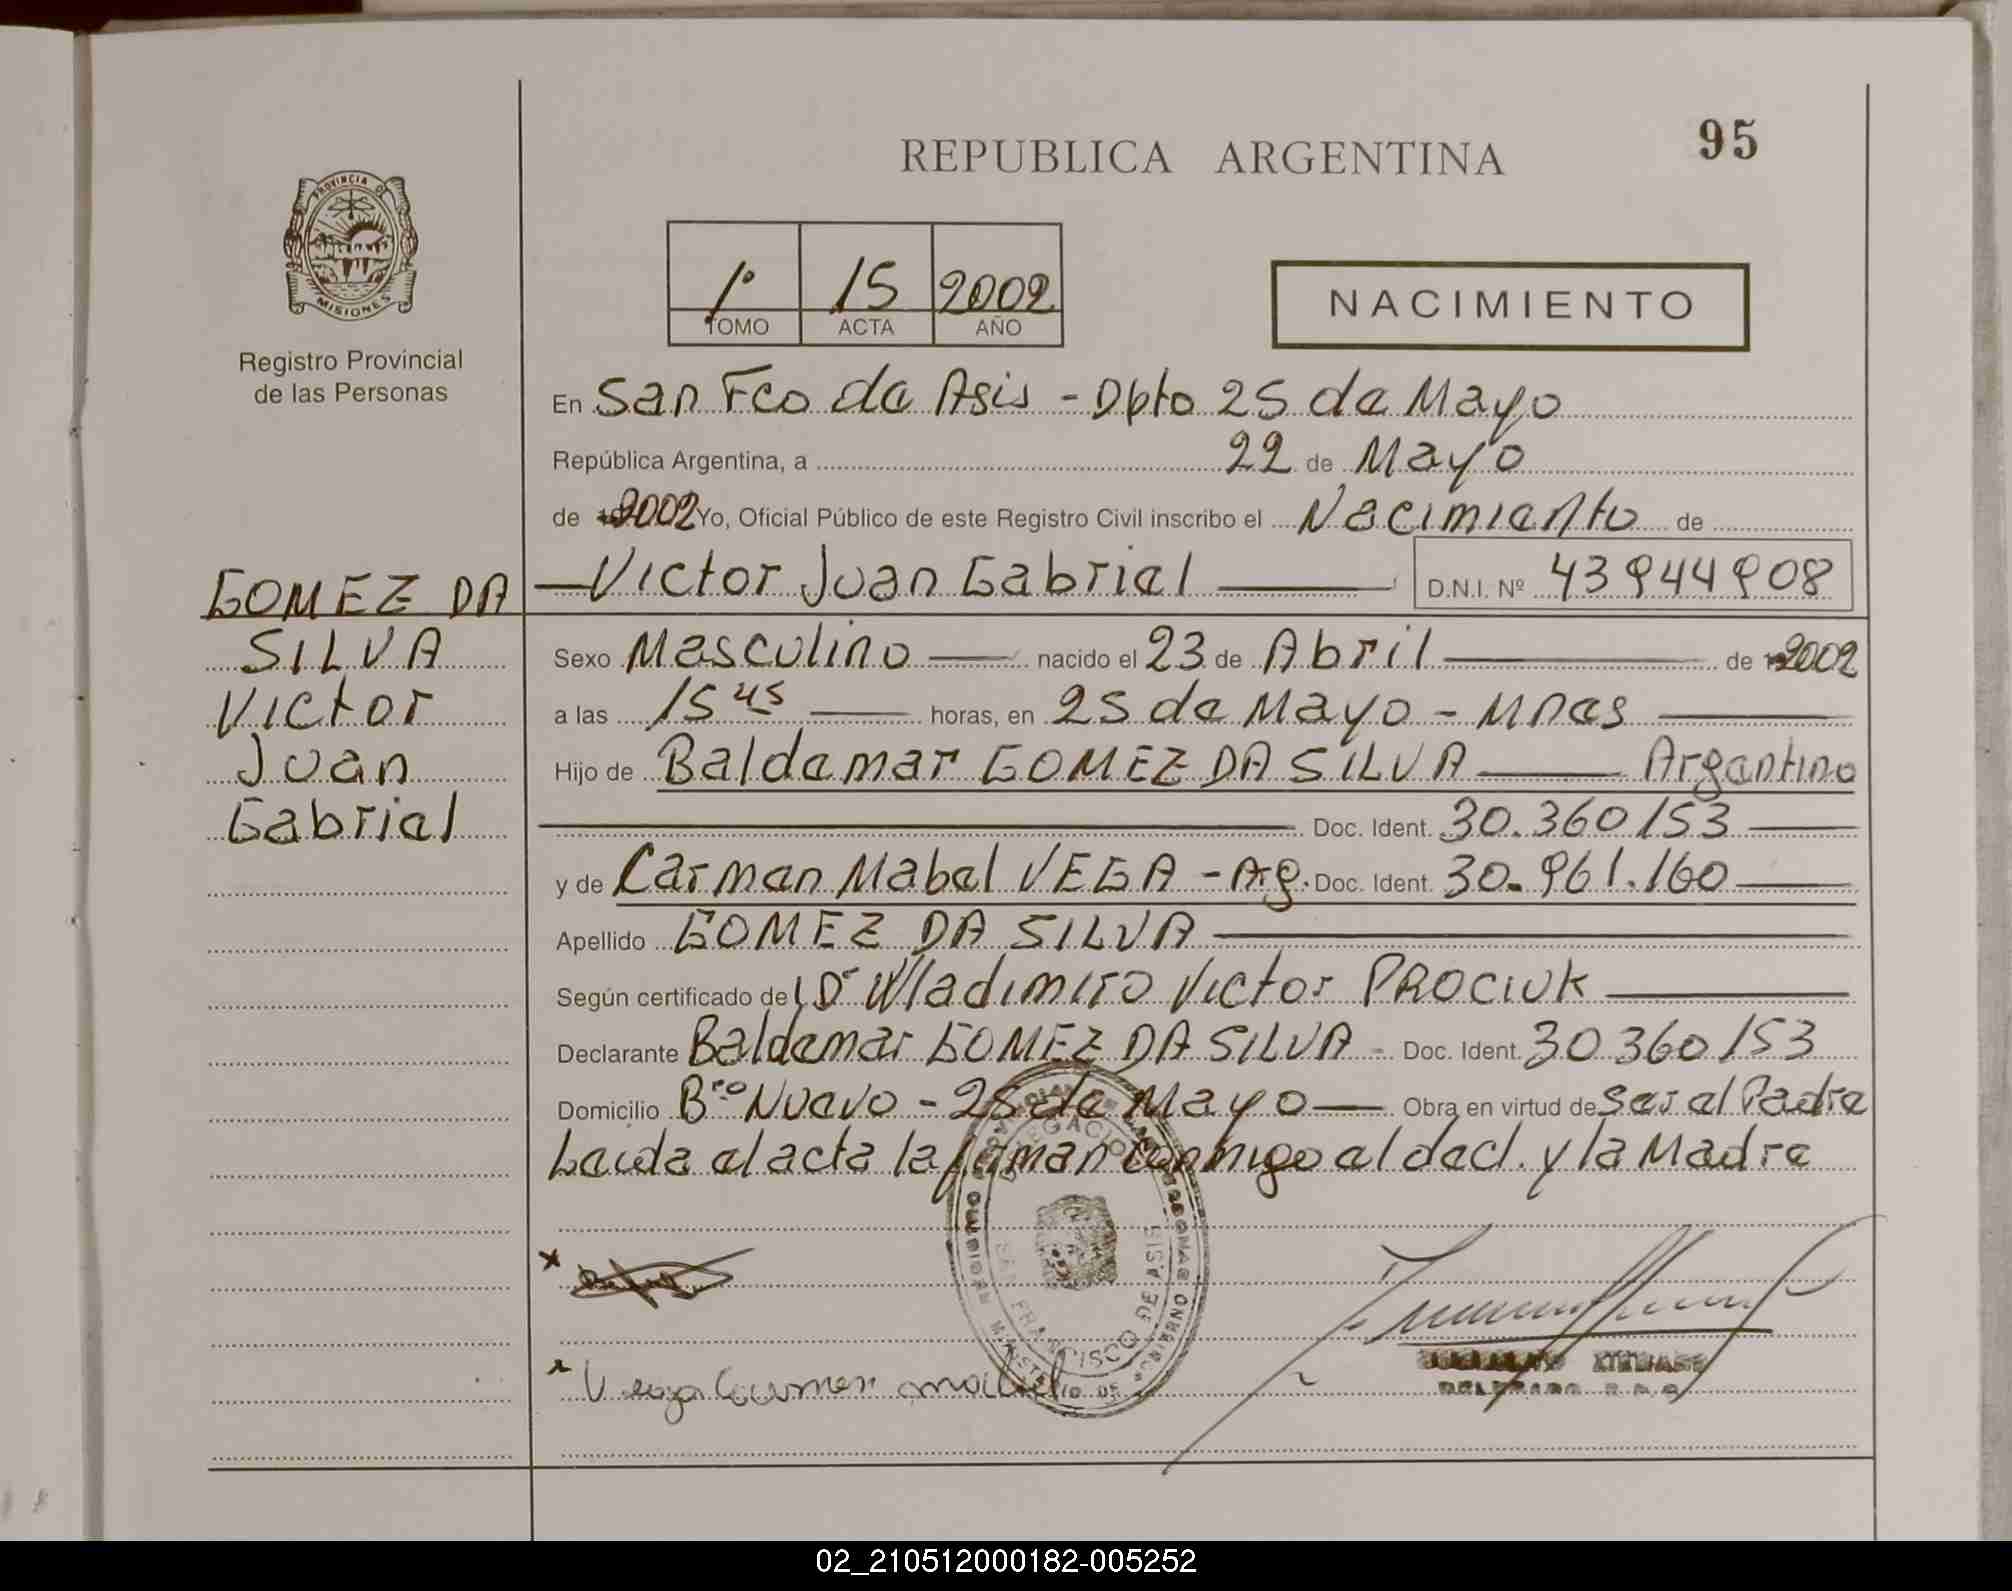 95
REPUBLICA ARGENTINA
PROVINCIA DE
MISIONES
Registro Provincial
de las Personas
1º 15 2002
TOMO ACTA AÑO
NACIMIENTO
En San Fco de Asis - Dpto 25 de Mayo
República Argentina, a 22 de Mayo
de 2002 Yo, Oficial Público de este Registro Civil inscribo el Nacimiento de
Victor Juan Gabriel D.N.I. Nº 43944908
GOMEZ DA
SILVA
Victor
Juan
Gabriel
Sexo Masculino nacido el 23 de Abril de 2002
a las 15 45 horas, en 25 de Mayo - Mnes
Hijo de Baldemar GOMEZ DA SILVA Argentino
Doc. Ident. 30.360153
y de Carmen Mabel VEGA - Arg. Doc. Ident. 30.961.160
Apellido GOMEZ DA SILVA
Según certificado del Dr Wladimiro Victor PROCIUK
Declarante Baldemar GOMEZ DA SILVA - Doc. Ident. 30360153
Domicilio Bro Nuevo - 25 de Mayo Obra en virtud de Ser el Padre
Leida el acta la firman conmigo el decl. y la Madre
SAN FRANCISCO DE ASIS
Vega Carmen mabel
02_210512000182-005252